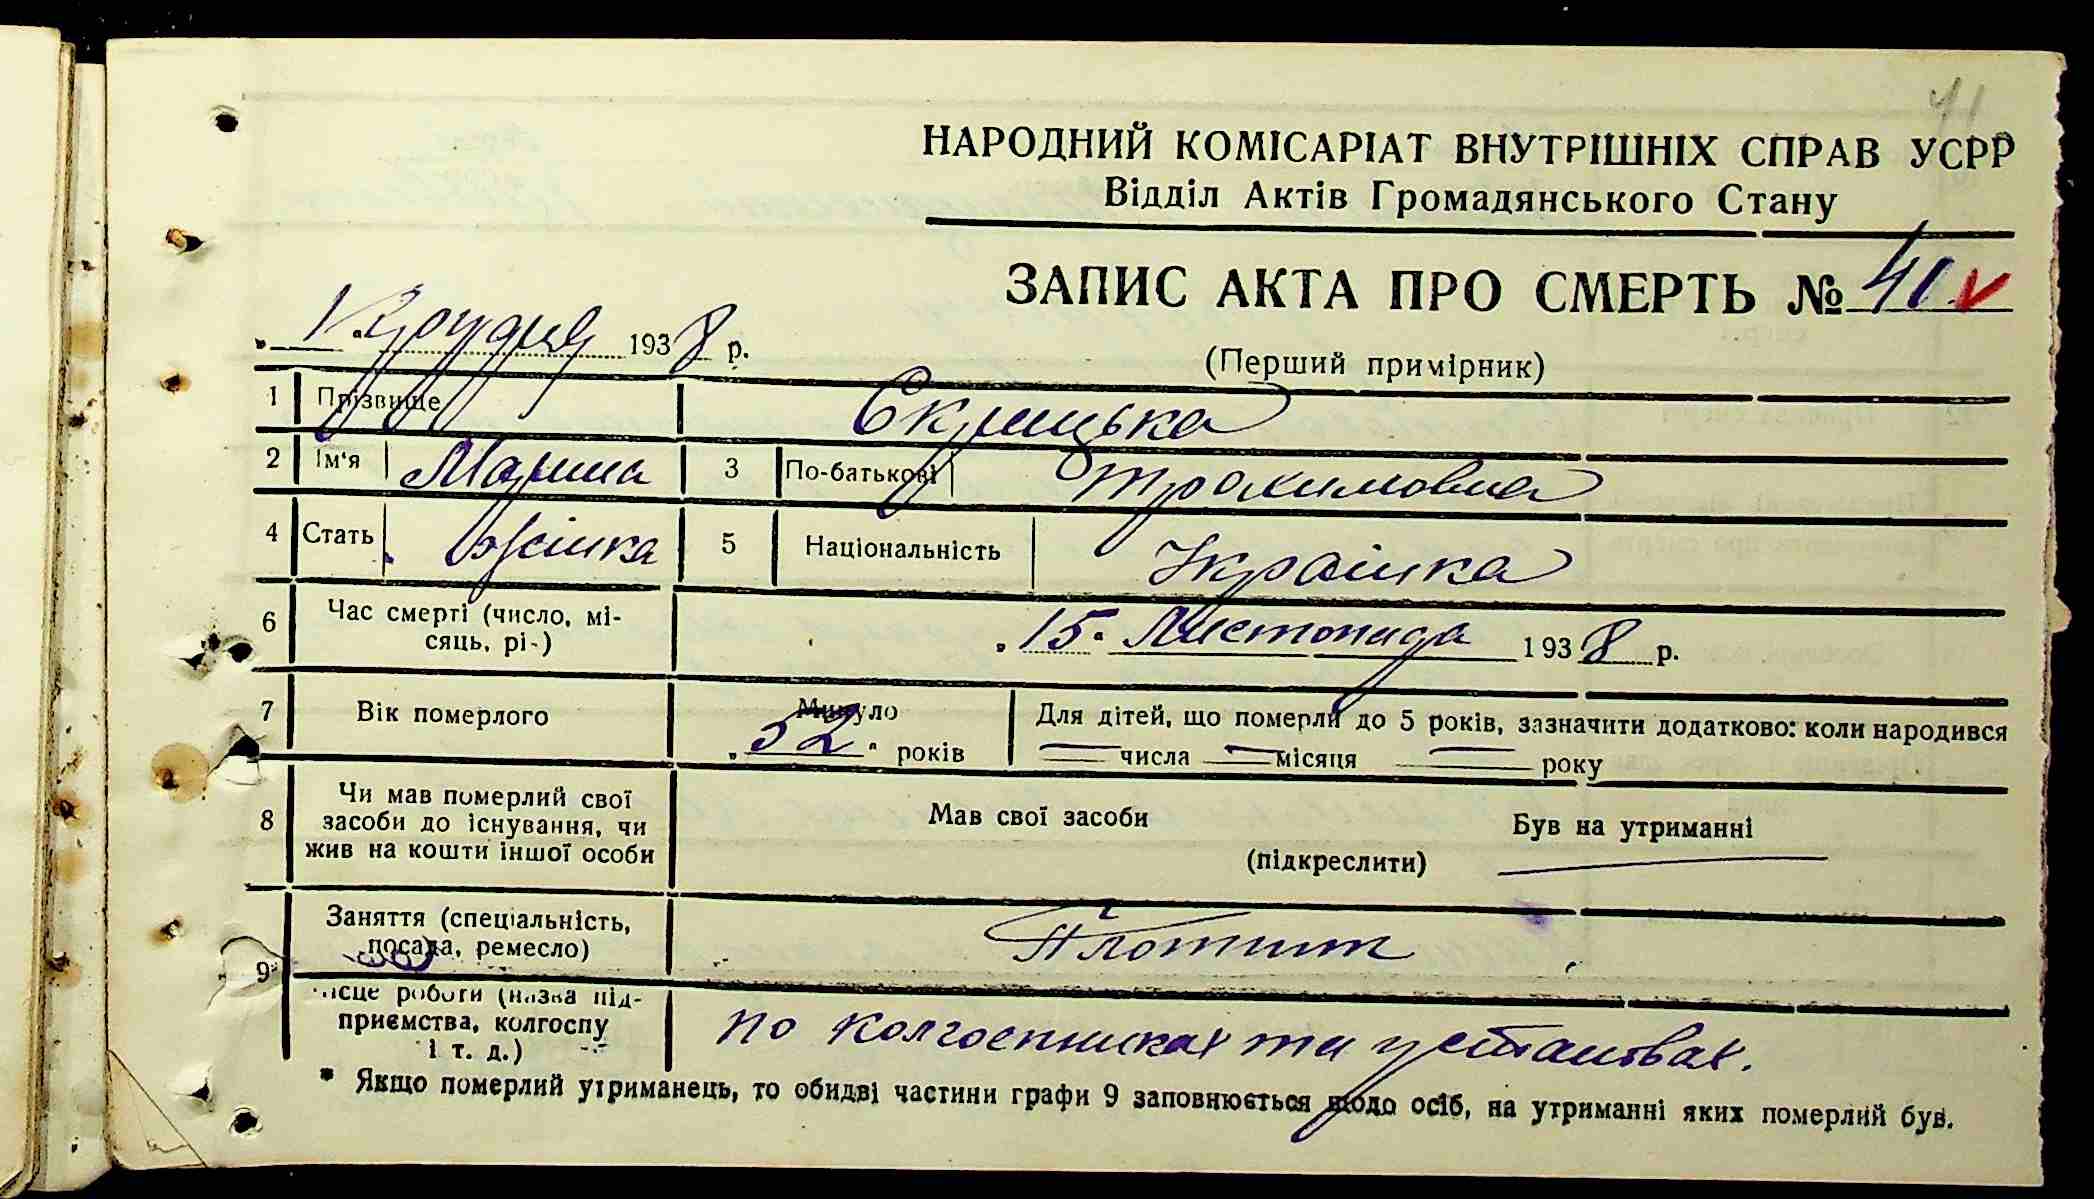 41
НАРОДНИЙ КОМІСАРІАТ ВНУТРІШНІХ СПРАВ УСРР
Відділ Актів Громадянського Стану
ЗАПИС АКТА ПРО СМЕРТЬ № 41 v
„ 1 “ Грудня 1938 р.
(Перший примірник)
1 Прізвище Скрицька
2 Ім'я Марина 3 По-батькові Трохимовна
4 Стать Жінка 5 Національність Українка
6 Час смерті (число, мі-
сяць, рі-) „ 15 “ Листопада 1938 р.
7 Вік померлого Минуло
„ 52 “ років
Для дітей, що померли до 5 років, зазначити додатково: коли народився
— числа — місяця — року
8 Чи мав померлий свої
засоби до існування, чи
жив на кошти іншої особи
Мав свої засоби
Був на утриманні
(підкреслити)
9* Заняття (спеціальність,
посада, ремесло)
місце роботи (назва під-
приємства, колгоспу
і т. д.)
по колгоспниках та установах.
* Якщо померлий утриманець, то обидві частини графи 9 заповнюється щодо осіб, на утриманні яких померлий був.